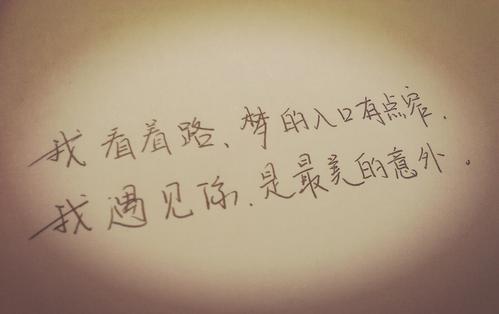 我看着路、梦的入口有点窄.
我遇见你、是最美的意外。